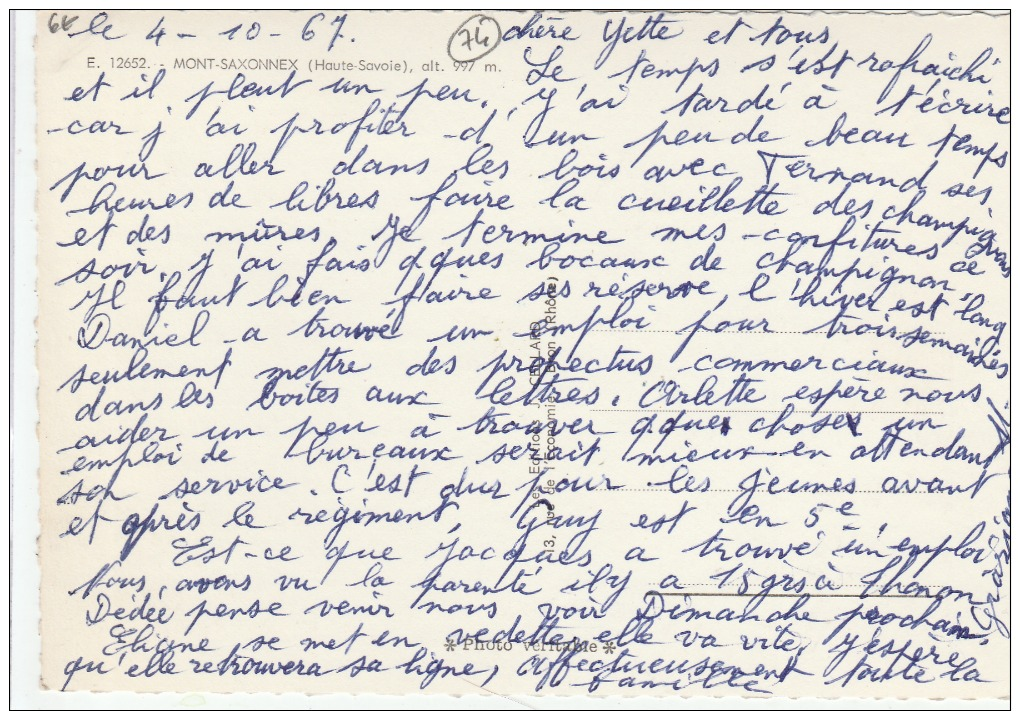 6€
le 4-10-67.
74
chère Yette et tous
E. 12652. - MONT-SAXONNEX (Haute-Savoie), alt. 997 m.
Le temps s'est rafraîchi
et il pleut un peu. J'ai tardé à t'écrire
car j'ai profiter d'un peu de beau temps
pour aller dans les bois avec Fernand ses
heures de libres faire la cueillette des champignons
et des mûres. Je termine mes confitures ce
soir. J'ai fais qques bocaux de champignon.
Il faut bien faire ses réserve, l'hiver est long
Daniel a trouvé un emploi pour trois semaines
seulement mettre des propectus commerciaux
dans les boites aux lettres. Arlette espère nous
aider un peu à trouver qque chose un
emploi de bureaux serait mieux en attendant
son service. C'est dur pour les jeunes avant
et après le régiment. Guy est en 5e.
Est-ce que Jacques a trouvé un emploi
Nous avons vu la parenté il y a 15 jrs à Thonon
Dédée pense venir nous voir Dimanche prochain.
se met en vedette elle va vite, j'espère
qu'elle retrouvera sa ligne, affectueusement toute la
famille
Les Editions CELLARD
13, rue de l'Economie, Bron (Rhône)
* Photo véritable *